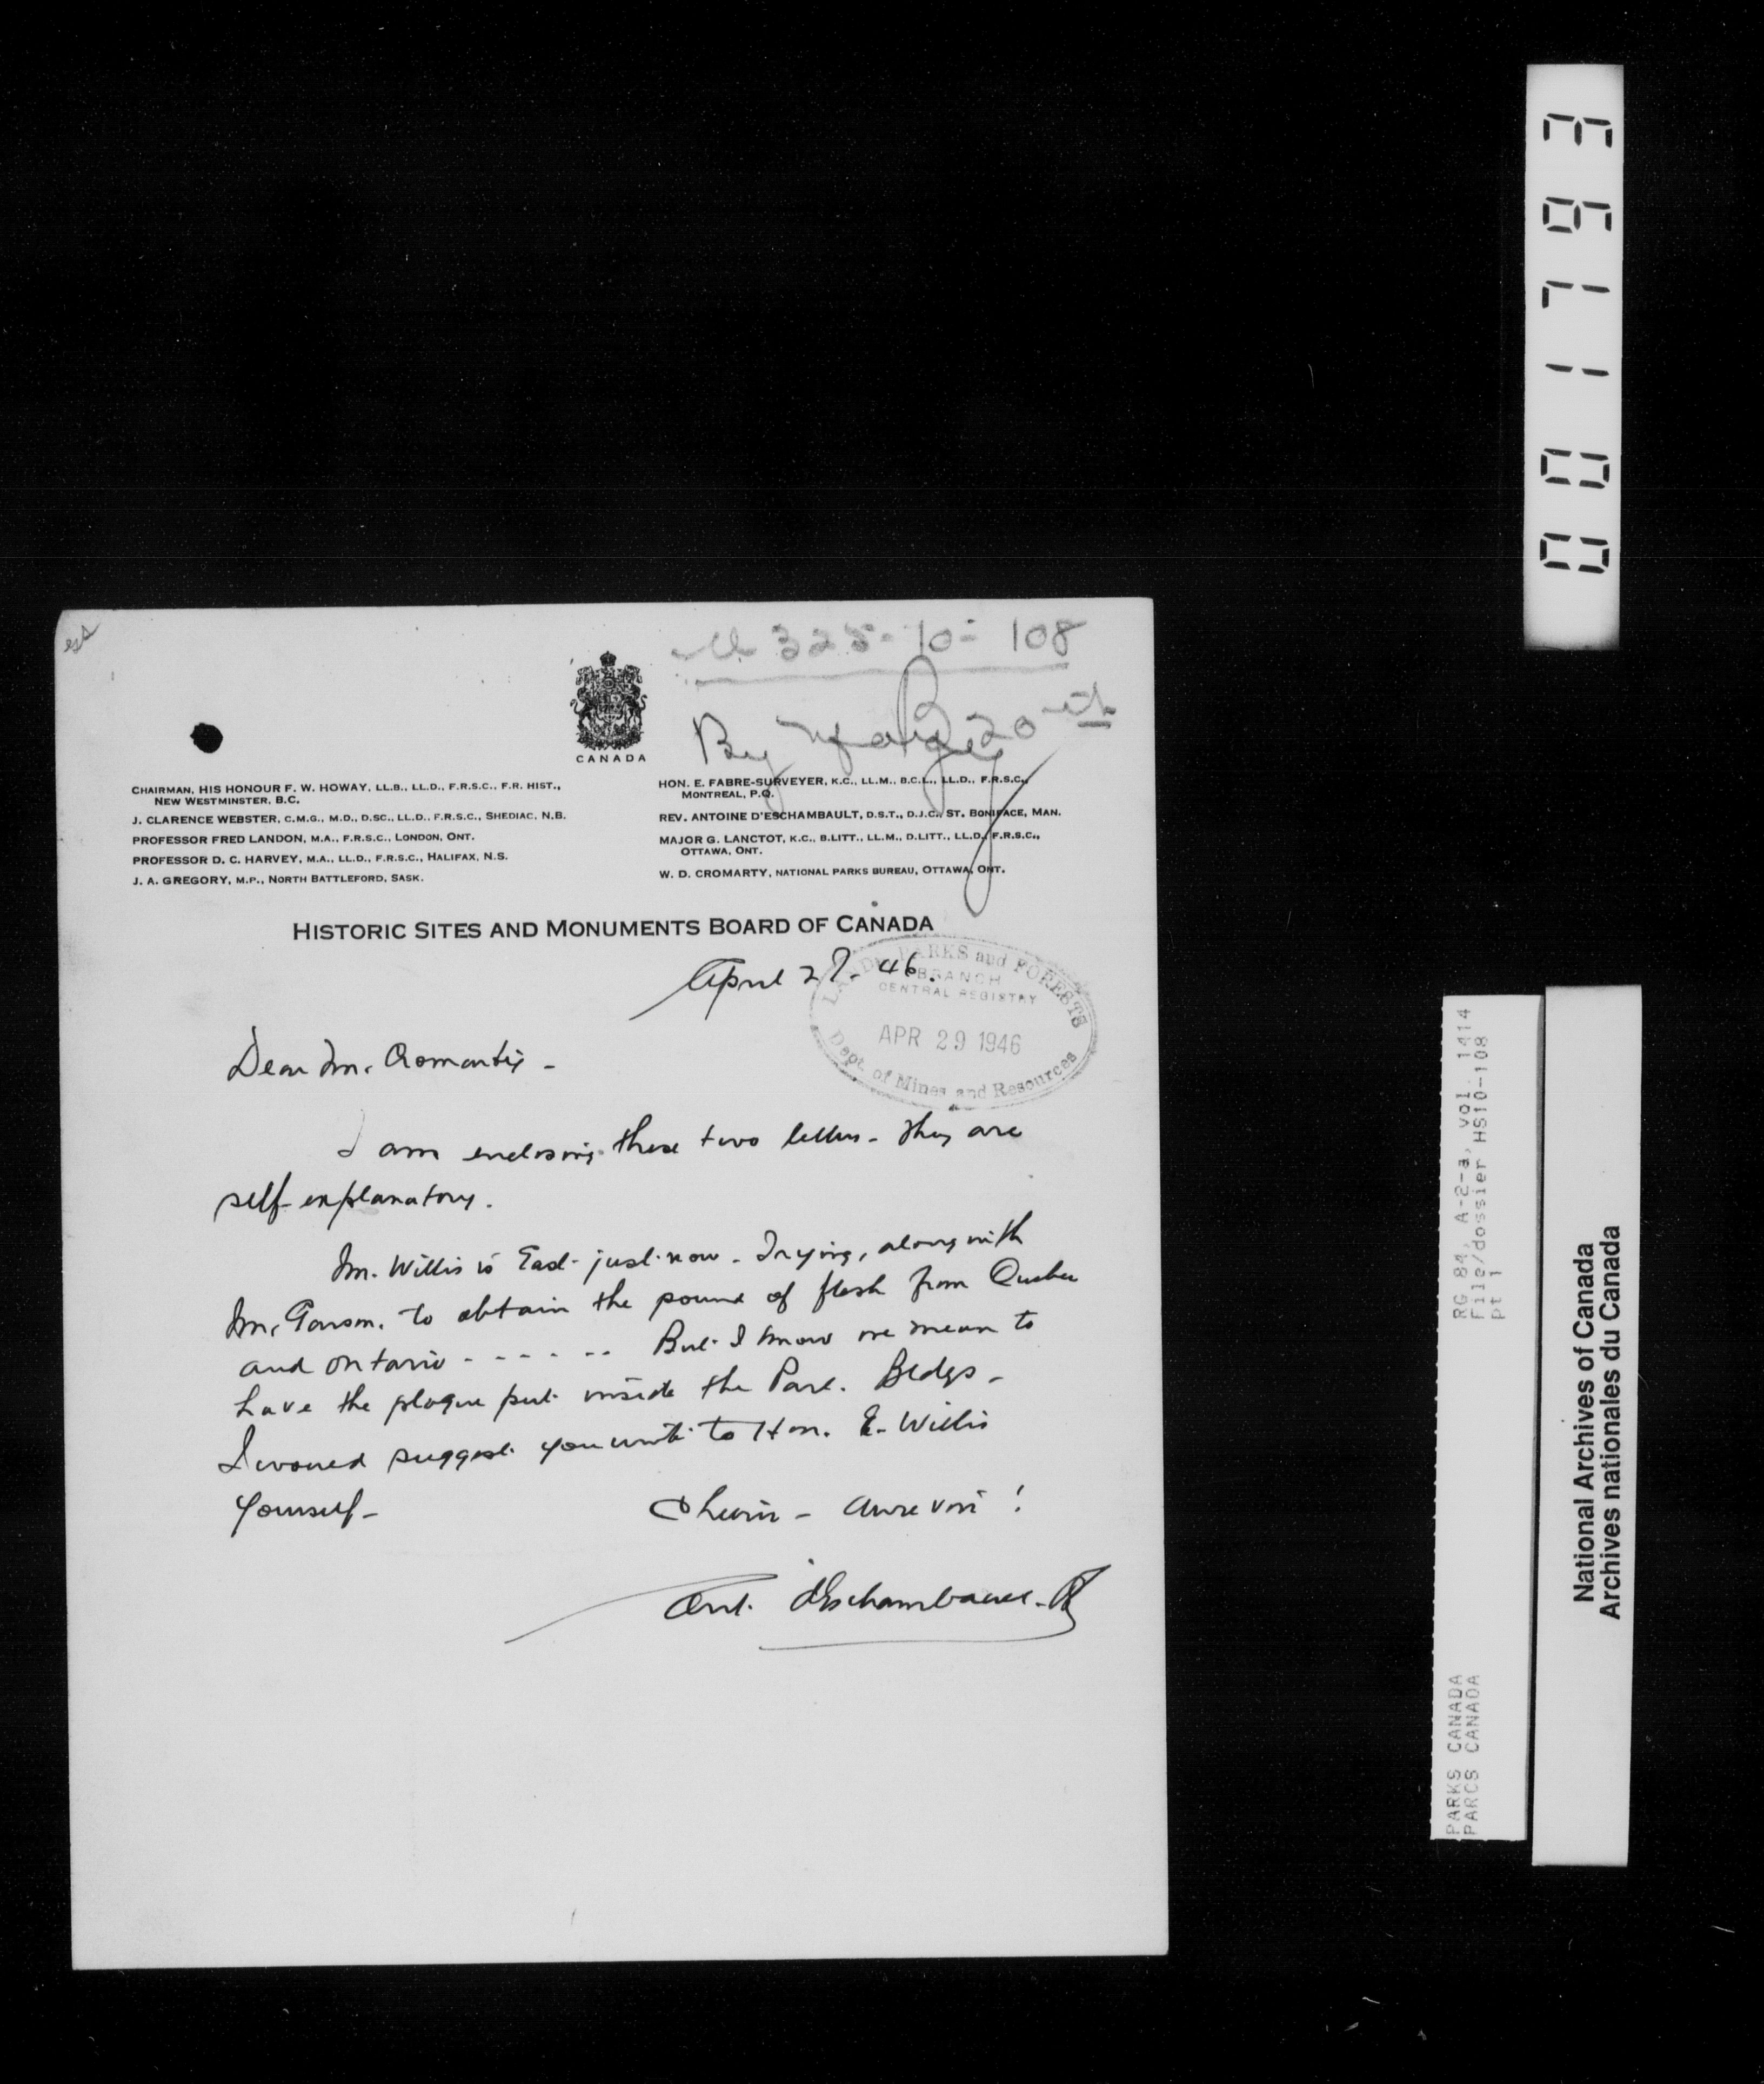 325-10-108
CANADA
CHAIRMAN, HIS HONOUR F. W. HOWAY, LL.B., LL.D., F.R.S.C., F.R. HIST.,
NEW WESTMINSTER, B.C.
J. CLARENCE WEBSTER, C.M.G., M.D., D.SC., LL.D., F.R.S.C., SHEDIAC, N.B.
PROFESSOR FRED LANDON, M.A., F.R.S.C., LONDON, ONT.
PROFESSOR D. C. HARVEY, M.A., LL.D., F.R.S.C., HALIFAX, N.S.
J. A. GREGORY, M.P., NORTH BATTLEFORD, SASK.
HON. E. FABRE-SURVEYER, K.C., LL.M., B.C.L., LL.D., F.R.S.C.,
MONTREAL, P.Q.
REV. ANTOINE D'ESCHAMBAULT, D.S.T., D.J.C., ST. BONIFACE, MAN.
MAJOR G. LANCTOT, K.C., B.LITT., LL.M., D.LITT., LL.D., F.R.S.C.,
OTTAWA, ONT.
W. D. CROMARTY, NATIONAL PARKS BUREAU, OTTAWA, ONT.
HISTORIC SITES AND MONUMENTS BOARD OF CANADA
April 27. 46.
LANDS, PARKS and FORESTS
BRANCH
CENTRAL REGISTRY
APR 29 1946
Dept. of Mines and Resources
Dear Mr. Cromarty -
I am enclosing these two letters - They are
self-explanatory.
Mr. Willis is East just now - Trying, along with
Mr. Garson, to obtain the pound of flesh from Quebec
and Ontario - - - - - - But I know we mean to
have the plaque put inside the Parl. Bldgs -
I would suggest you write to Hon. E. Willis
yourself -
Cheerio - Au revoir !
Ant. d'Eschambault
0001793
RG 84, A-2-a, vol. 1414
File/dossier HS10-108
pt 1
PARKS CANADA
PARCS CANADA
National Archives of Canada
Archives nationales du Canada